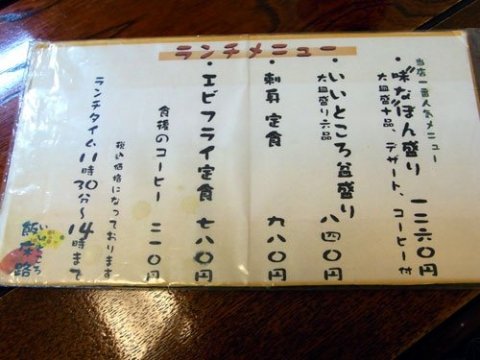 ランチメニュー
当店一番人気メニュー
・味なぼん盛り 一二六〇円
大皿盛十品、デザート、コーヒー付
・いいところ盆盛り 八四〇円
大皿盛り六品
・刺身定食 九八〇円
・エビフライ定食 七八〇円
食後のコーヒー 二一〇円
税込価格になっております
ランチタイム 11時30分〜14時まで
いいところ
飯床路